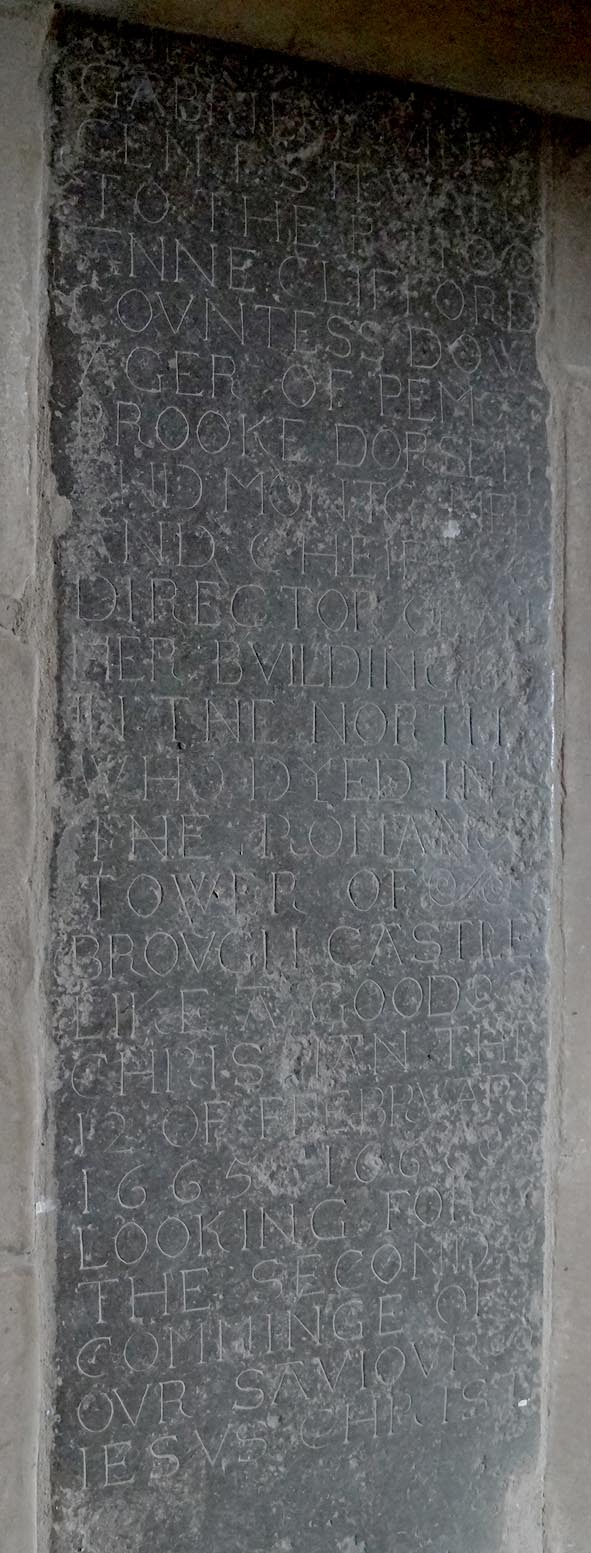 GABRIEL VINCENT
GENT STEWARD
TO THE R HO
ANNE CLIFFORD
COVNTESS DOW
AGER OF PEM
BROOKE DORSETT
AND MONTGOMER
AND CHEIF
DIRECTOR OF ALL
HER BVILDINGS
IN THE NORTH
WHO DYED IN
THE ROMAN
TOWER OF
BROVGH CASTLE
LIKE A GOOD
CHRISTIAN THE
12 OF FEEBRVARY
1665 166
LOOKING FOR
THE SECOND
COMMINGE OF
OVR SAVIOVR
IESVS CHRIST